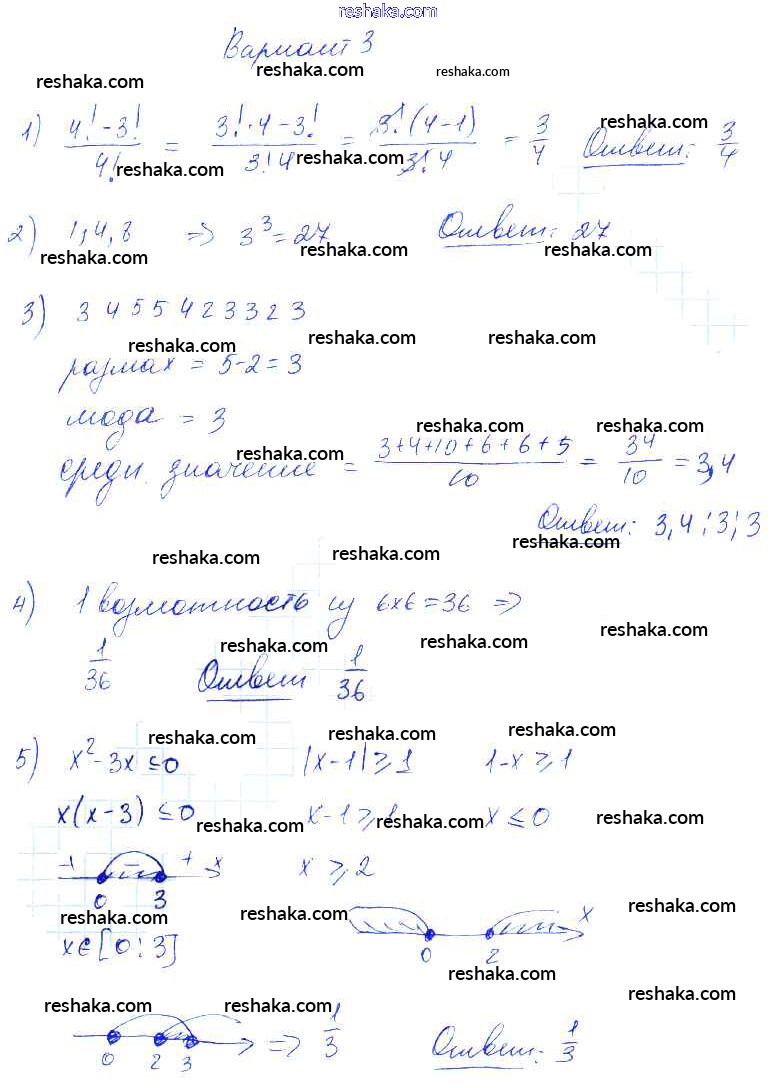 reshaka.com
Вариант 3
reshaka.com reshaka.com reshaka.com
1) (4! - 3!)/4! = (3! · 4 - 3!)/(3! 4) = (3! (4-1))/(3! 4) = 3/4 Ответ: 3/4
reshaka.com reshaka.com reshaka.com
2) 1, 4, 8 => 3³ = 27 Ответ: 27
reshaka.com reshaka.com reshaka.com
3) 3 4 5 5 4 2 3 3 2 3
reshaka.com reshaka.com reshaka.com
размах = 5-2 = 3
мода = 3
reshaka.com reshaka.com reshaka.com
средн. значение = (3+4+10+6+6+5)/10 = 34/10 = 3,4
Ответ: 3,4; 3; 3
reshaka.com reshaka.com reshaka.com
4) 1 возможность из 6x6 = 36 =>
reshaka.com reshaka.com reshaka.com
1/36 Ответ 1/36
reshaka.com reshaka.com reshaka.com
5) x² - 3x ≤ 0 |x-1| ≥ 1 1-x ≥ 1
x(x-3) ≤ 0 x-1 ≥ 1 x ≤ 0
reshaka.com reshaka.com reshaka.com
+ - + x x ≥ 2
0 3
reshaka.com reshaka.com reshaka.com
x
0 2
x ∈ [0; 3]
reshaka.com reshaka.com
reshaka.com reshaka.com
0 2 3 => 1/3 Ответ: 1/3